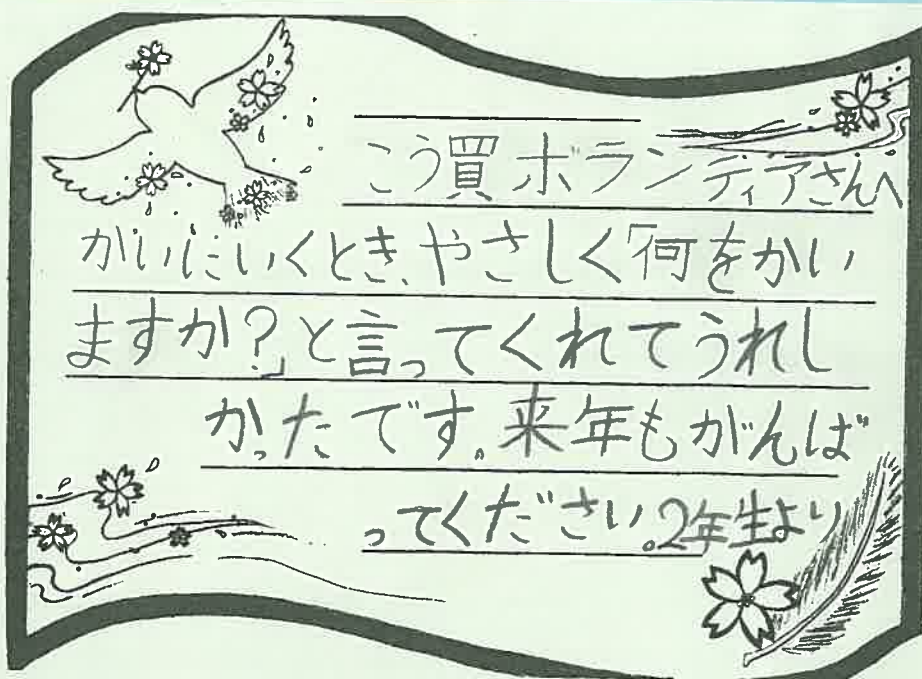 こう買ボランティアさんへ
かいにいくとき、やさしく「何をかい
ますか?」と言ってくれてうれし
かったです。来年もがんば
ってください。2年生より